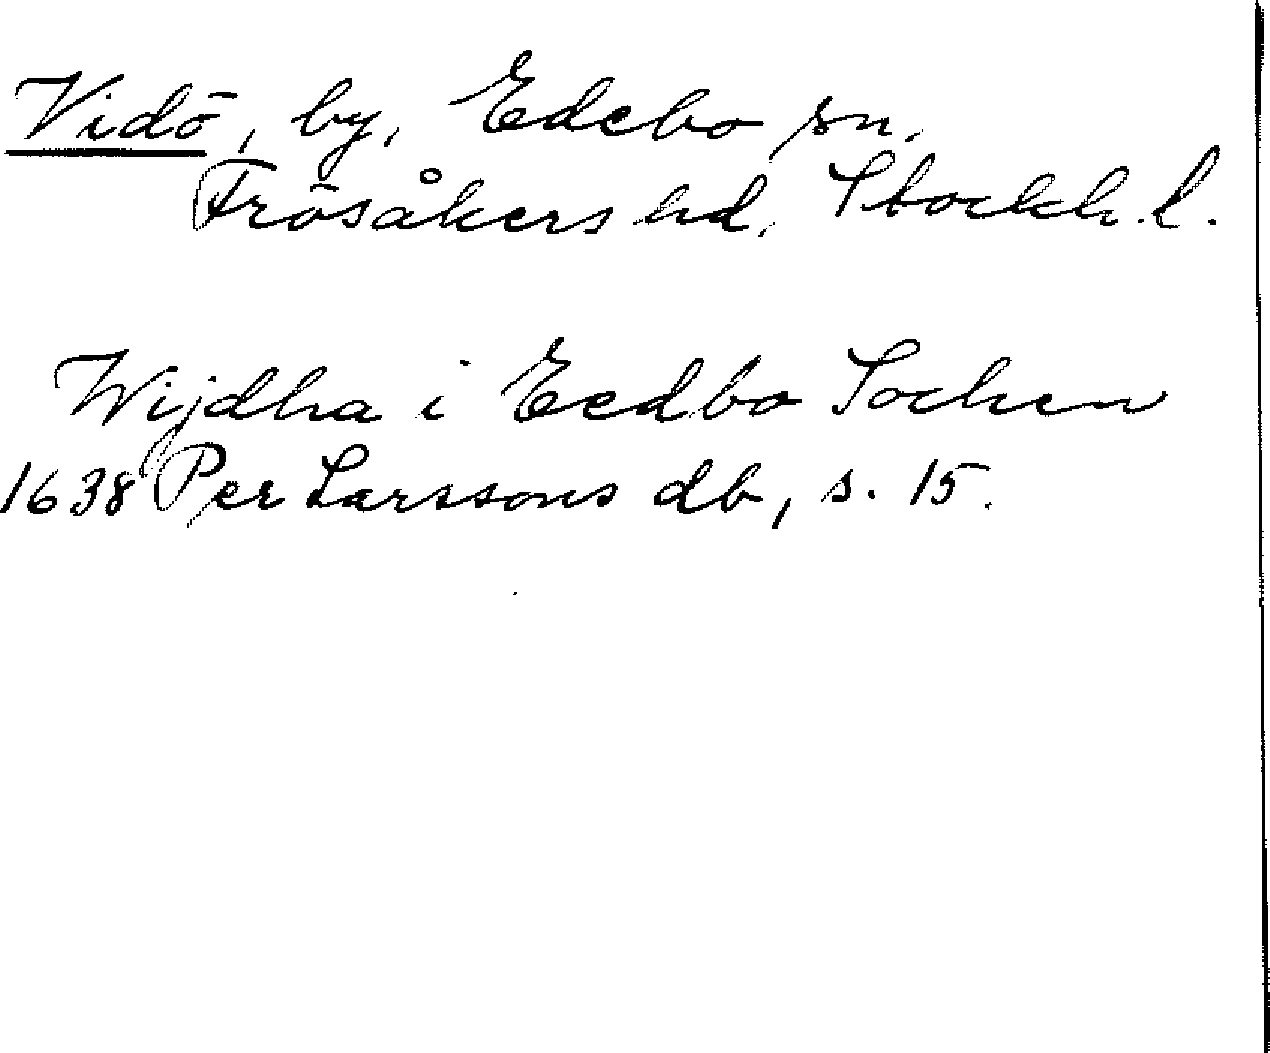 Vidö, by, Edebo sn.
Frösåkers hd. Stockh. l.
Wijdha i Eedbo Sochen
1638 Per Larssons db, s. 15.